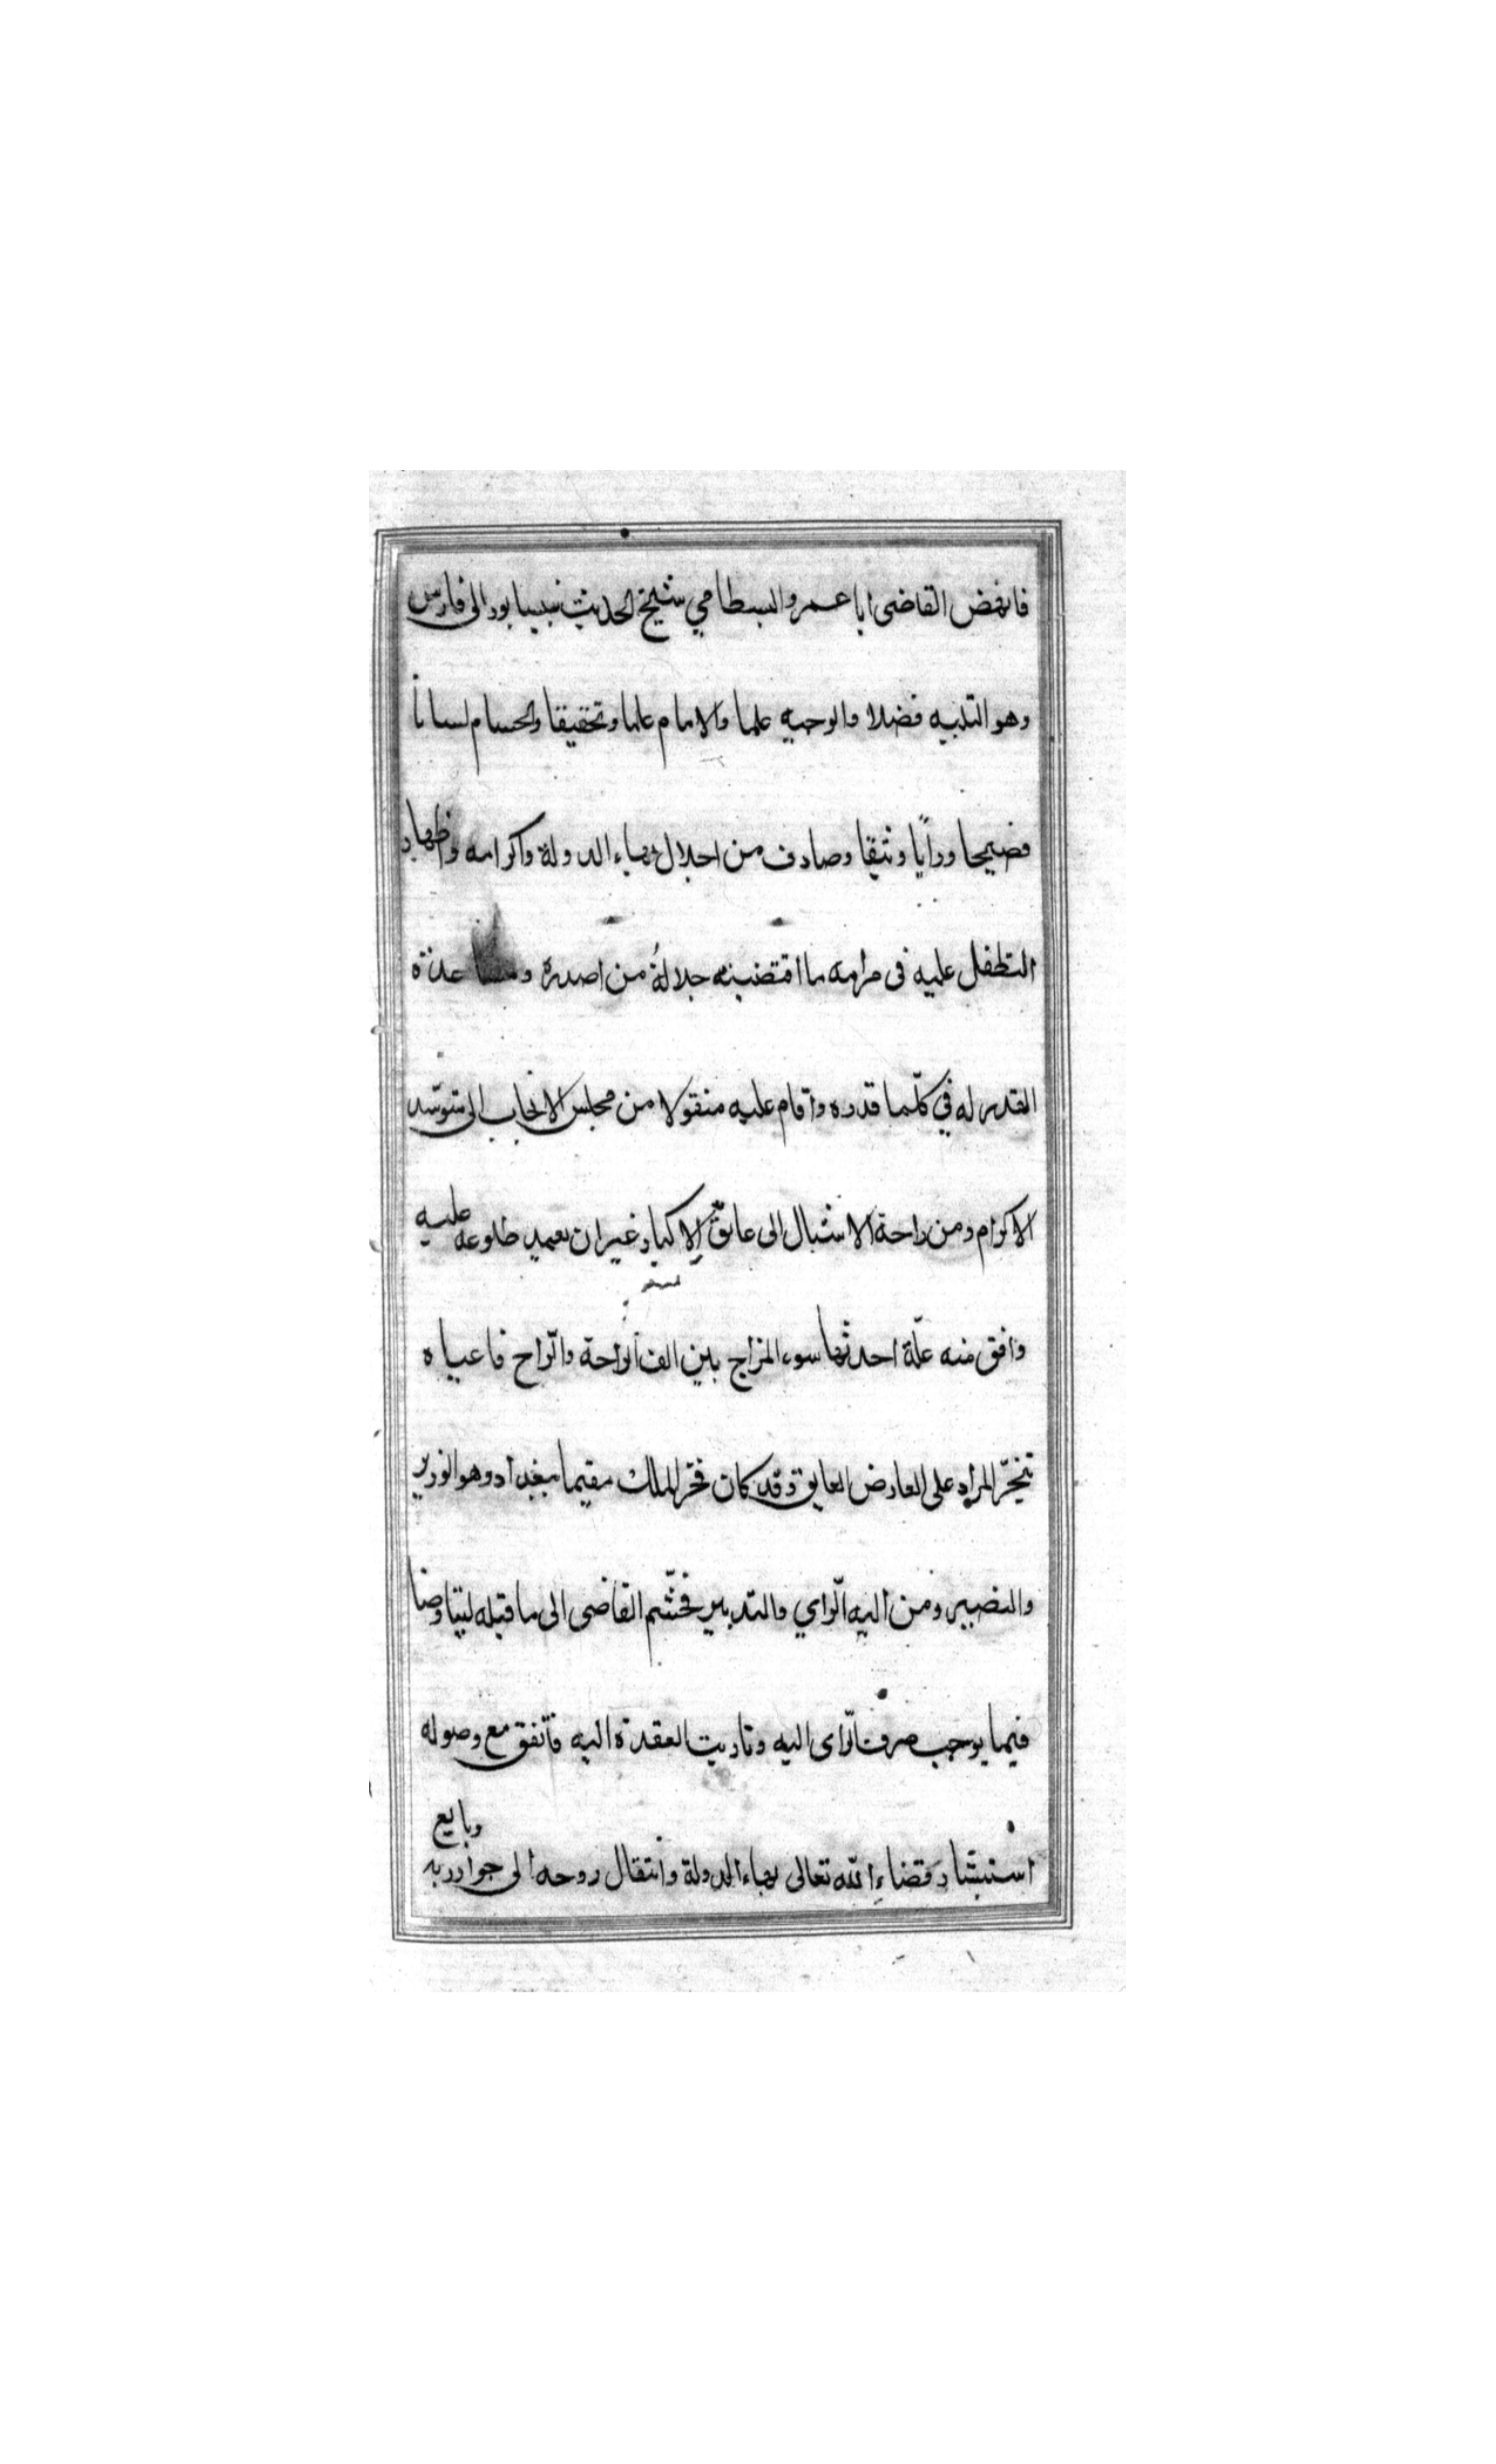 فانهض القاضى ابا عمرو البسطامي شيخ الحديث نبيسابور الى فارس
وهو النبيه فضلا والوجيه علما والامام علما وتحقيقا والحسام لسانا
فصيحا ورأيا وثيقا وصادف من اجلال بهاء الدولة واكرامه واظهار
التطفل عليه فى مرامه ما اقتضته جلالة من اصدره
القدر له في كلّما قدره واقام عليه منقولا من مجلس الانجاب الى متوسّد
الاكرام ومن راحة الاشبال الى عاتق الاكبار غير ان بعيد طلوعه عليه
وافق منه علّة احدثها سوء المزاج بين الف الراحة والرّاح فاعياه
تنجّز المراد على العارض العايق وقد كان فخر الملك مقيما ببغداد وهو الوزير
والنصير ومن اليه الرّاي والتدبير فجشّم القاضى الى ما قبله ليتفاوضا
فيما يوجب صرف الرّاى اليه وتاريت العقدة اليه فاتفق مع وصوله
استيثار قضاء الله تعالى بهاء الدولة وانتقال روحه الى جوار ربه
وبايع